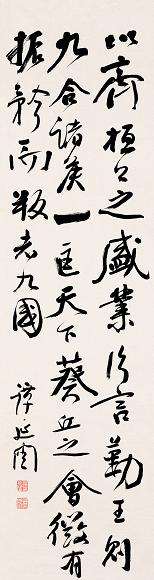 以齊桓公之盛業片言勤王則
九合諸矦一匡天下葵丘之會微有
振矜而叛者九國
譚延闓